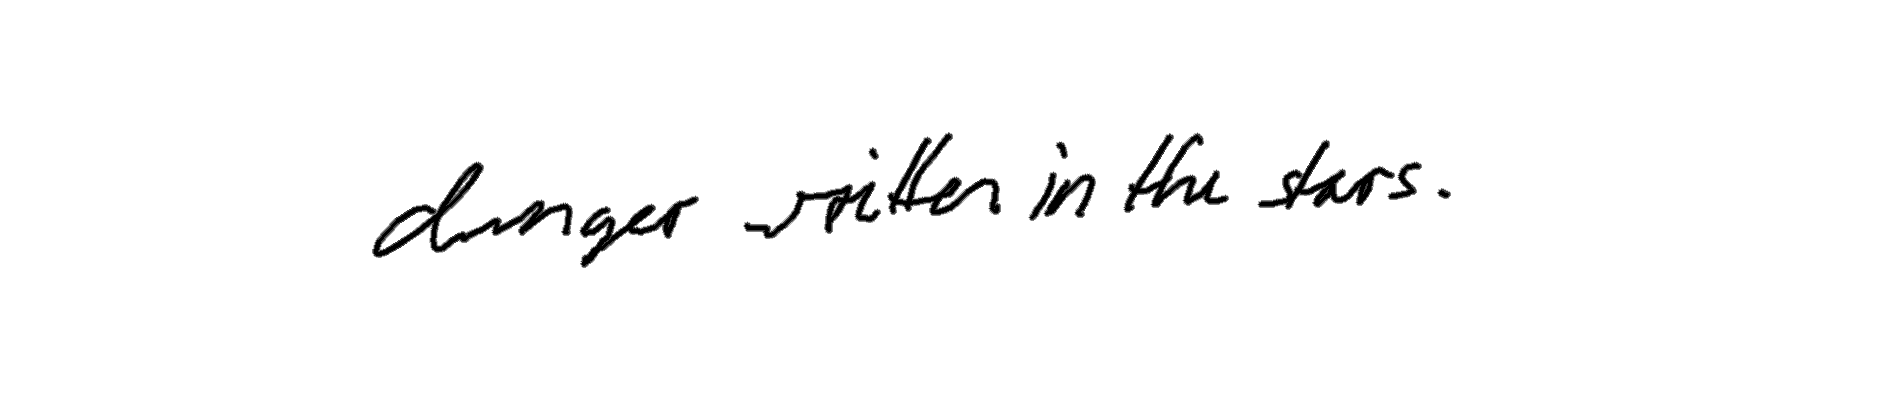 danger written in the stars.